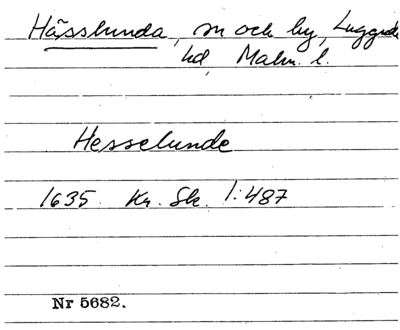 Hässlunda, sn och by, Luggude
hd, Malm. l.
Hesselunde
1635. Kr. Sk. 1:487
Nr 5682.